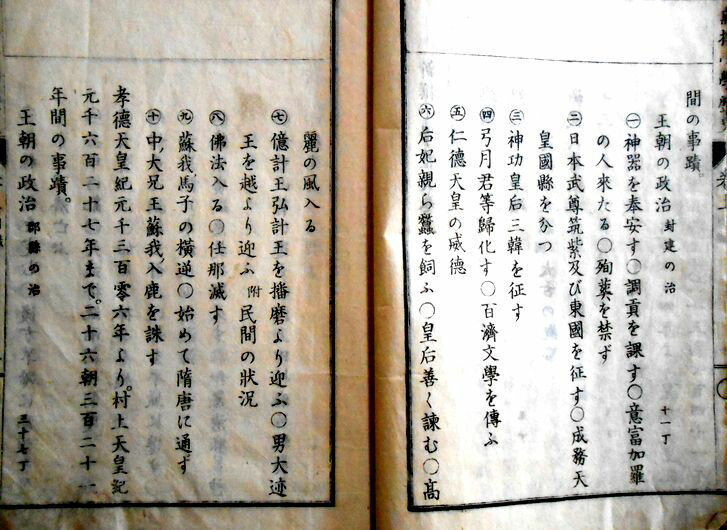 間の事蹟。
王朝の政治 封建の治 十一丁
㊀神器を奉安す〇調貢を課す〇意富加羅
の人来たる〇殉葬を禁ず
㊁日本武尊筑紫及び東國を征す〇成務天
皇國縣を分つ
㊂神功皇后三韓を征す
㊃弓月君等歸化す〇百濟文學を傳ふ
㊄仁德天皇の威德
㊅后妃親ら蠶を飼ふ〇皇后善く諫む〇高
麗の風入る
㊆億計王弘計王を播磨より迎ふ〇男大迹
王を越より迎ふ 附 民間の狀況
㊇佛法入る〇任那滅す
㊈蘇我馬子の橫逆〇始めて隋唐に通ず
㊉中大兄王蘇我入鹿を誅す
孝德天皇紀元千三百零六年より。村上天皇紀
元千六百二十七年まで。二十六朝三百二十一
年間の事蹟。
王朝の政治 郡縣の治 三十七丁